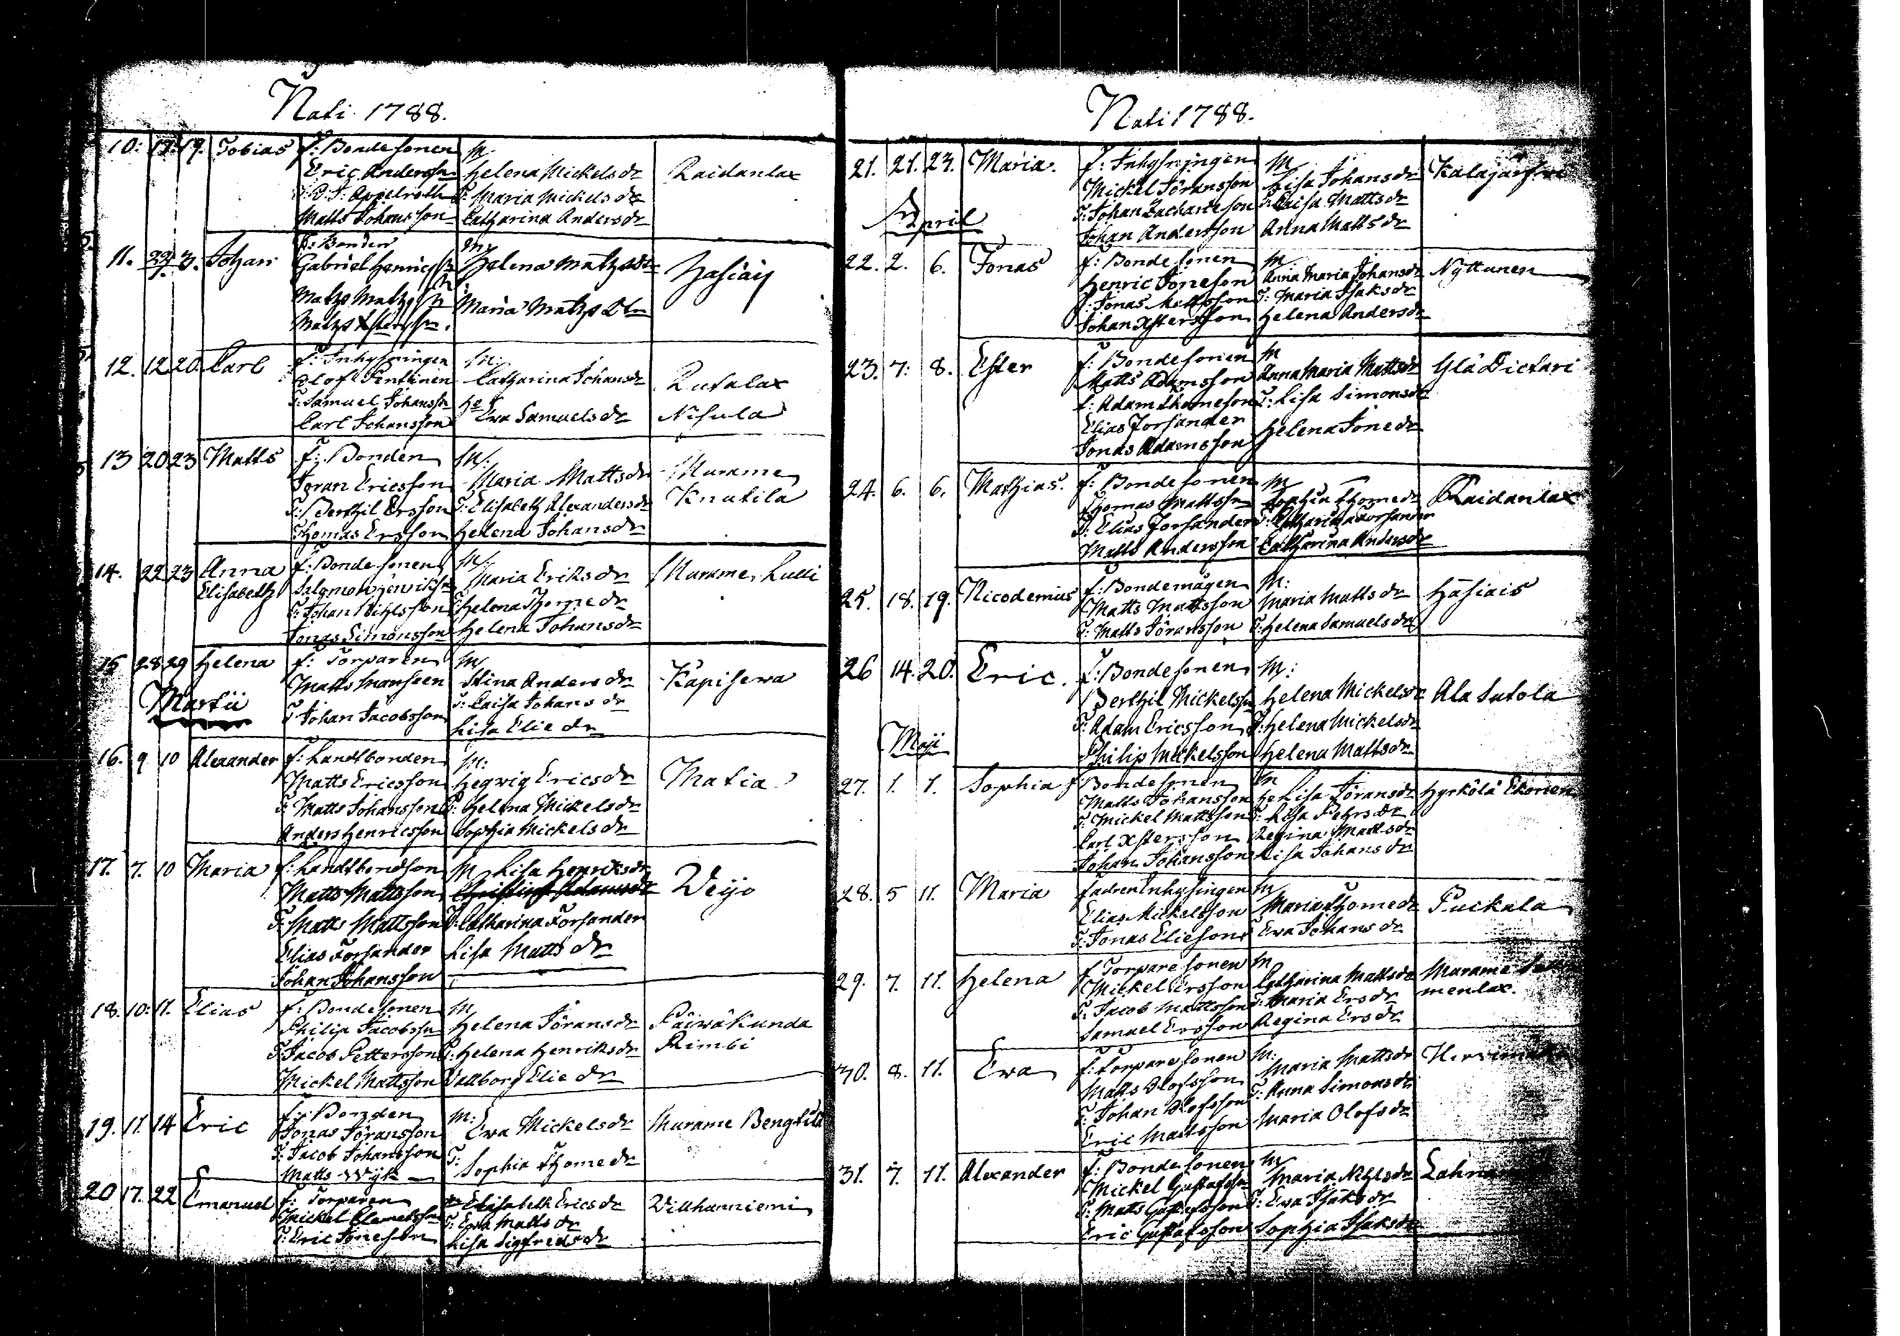 Nati 1788.
10. 17. 19. Tobias f: Bondesonen M Raidanlax
Eric Andersson Helena Mickelsdr
Appelroth T: Maria Mickelsdr
Matts Johansson Catharina Andersdr
11. 3. Johan f: Bonden M Hasiais
Gabriel Henricss. Helena Matzsdtr
Matzs Matzs Maria Matzs Dtr
Matzs
12. 12 20. Carl f: Inhysingen M: Rutalax
Olof Penttinen Catharina Johansdr Nisula
T: Samuel Johansson
Carl Johansson Eva Samuelsdr
13 20 23 Matts f: Bonden M: Murame
Göran Ericsson Maria Mattsdr Knutila
T: Berthil Ersson T: Elisabeth Alexandersdr
Thomas Ersson Helena Johansdr
14. 22 23 Anna f: Bondesonen M: Murame Lulli
Elisabeth Salomon Henrikss. Maria Eriksdr
T: Johan T: Helena Thomedr
Jonas Simonsson Helena Johansdr
15 28 29 Helena f: Torparen M Käpisewa
Matts Manseen Stina Andersdr
Martii T: Johan Jacobsson T: Caisa Johansdr
Lisa Eliedr
16. 9 10 Alexander f: Landbonden M: Matia
Matts Ericsson Hegvig Ericsdr
T: Matts Johansson T: Helena Mickelsdr
Anders Henricsson Sophia Mickelsdr
17. 7. 10 Maria f: Landbondson M Lisa Henriksdr Veijo
Matts Mattsson
T: Matts Mattsson T: Catharina Forsander
Elias Forsander Lisa Mattsdr
Johan Johansson
18. 10. 11. Elias f: Bondesonen M Päiwäkunda
Philip Jacobsson Helena Göransdr Rimbi
T: Jacob Pettersson T: Helena Henriksdr
Mickel Mattsson Vallborg Eliedr
19. 11. 14 Eric f: Bonden M: Murame Bengtila
Jonas Göransson Eva Mickelsdr
T: Jacob Johansson T:
Matts Wijk Sophia Thomedr
20 17. 22 Emanuel f: Torparen Elisabeth Ericsdr Vilhanniemi
Mickel Clemetsson T: Eva Mattsdr
T: Eric Jöneson Lisa Sigfredsdr
Nati 1788.
21. 21. 23. Maria. f: Inhysningen M Kalajärfwi
Mickel Göransson Lisa Johansdr
T: Johan Zachariesson T: Caisa Mattsdr
Johan Andersson Anna Mattsdr
April
22. 2. 6. Jonas f: Bondesonen M Nyttunen
Henric Joneson Anna Maria Johansdr
T: Jonas Mattsson T: Maria Isaksdr
Johan Xstersson Helena Andersdr
23. 7. 8. Ester f: Bondesonen M Ylä Dictari
Matts Adamsson Anna Maria Mattsdr
T: Adam Thomeson T: Lisa Simonsdr
Elias Forsander
Jonas Adamsson Helena Jönedr
24. 6. 6. Mathias. f: Bondesonen M Raidanlax
Thomas Mattsson Sophia Thomedr
T: Elias Forsander T: Catharina Forsander
Matts Andersson Catharina Andersdr
25. 18. 19. Nicodemus f: Bondemågen M: Häsiais
Matts Mattsson Maria Mattsdr
T: Matts Göransson T: Helena Samuelsdr
26 14. 20. Eric. f: Bondesonen M: Ala Sutola
Berthil Mickelsson Helena Mickelsdr
T: Adam Ericsson T: Helena Mickelsdr
Philip Mickelsson Helena Mattsdr
Maji
27. 1. 1. Sophia f Bondesonen M Hyrkölä Ekonen
Matts Johansson Lisa Göransdr
T: Mickel Mattsson T: Lisa Pehrsdr
Carl Xstersson Regina Mattsdr
Johan Johansson Lisa Johansdr
28. 5 11. Maria fadren Inhysingen M Puckala
Elias Mickelsson Maria Thomedr
T: Jonas Elieson Eva Johansdr
29. 7. 11. Helena f Torparesonen M Murame
Mickel Ersson Catharina Mattsdr menlax.
T: Jacob Mattsson T: Maria Ersdr
Samuel Ersson Regina Ersdr
30. 8. 11. Ewa f: Torparesonen M:
Matts Olofsson Maria Mattsdr
T: Johan Olofsson T: Anna Simonsdr
Eric Mattsson Maria Olofsdr
31. 7. 11. Alexander f: Bondesonen M
Mickel Gustafsson Maria Nihlsdr
T: Matts Gustafsson T: Eva Isaksdr
Eric Gustafsson Sophia Isaksdr